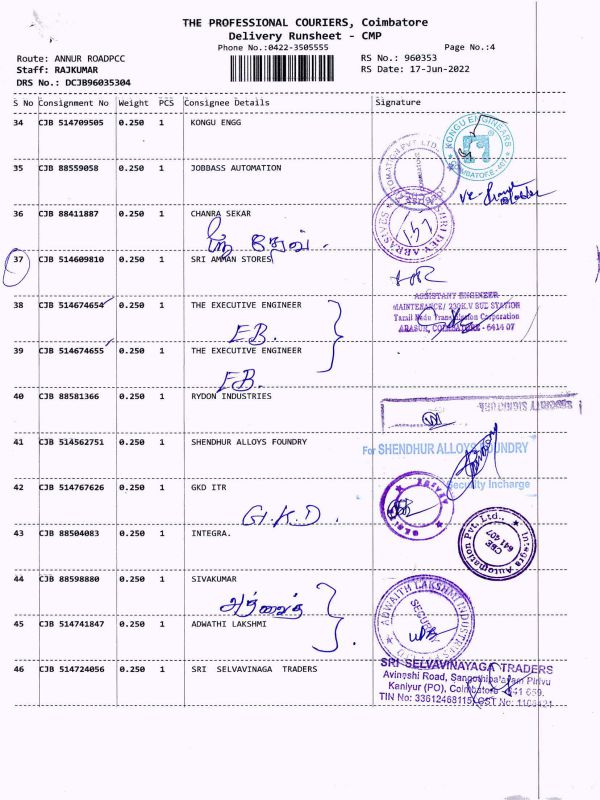 THE PROFESSIONAL COURIERS, Coimbatore
Delivery Runsheet - CMP
Phone No.:0422-3505555
Page No.:4
Route: ANNUR ROADPCC
RS No.: 960353
Staff: RAJKUMAR
RS Date: 17-Jun-2022
DRS No.: DCJB96035304
S No Consignment No Weight PCS Consignee Details Signature
34 CJB 514709505 0.250 1 KONGU ENGG
KONGU ENGINEARS
35 CJB 88559058 0.250 1 JOBBASS AUTOMATION
36 CJB 88411887 0.250 1 CHANRA SEKAR
37 CJB 514609810 0.250 1 SRI AMMAN STORES
38 CJB 514674654 0.250 1 THE EXECUTIVE ENGINEER
ASSISTANT ENGINEER
MAINTENANCE/ 230K.V SUB STATION
Tamil Nadu Transmission Corporation
ARASUR, COIMBATORE - 641407
EB.
39 CJB 514674655 0.250 1 THE EXECUTIVE ENGINEER
EB.
40 CJB 88581366 0.250 1 RYDON INDUSTRIES
41 CJB 514562751 0.250 1 SHENDHUR ALLOYS FOUNDRY
For SHENDHUR ALLOYS FOUNDRY
Security Incharge
42 CJB 514767626 0.250 1 GKD ITR
G.K.D.
43 CJB 88504083 0.250 1 INTEGRA.
Integra Automation Pvt. Ltd.,
CBE
641 407
44 CJB 88598880 0.250 1 SIVAKUMAR
அத்வைத்
ADWAITH LAKSHMI INDUSTRIES
45 CJB 514741847 0.250 1 ADWATHI LAKSHMI
46 CJB 514724056 0.250 1 SRI SELVAVINAGA TRADERS
SRI SELVAVINAYAGA TRADERS
Avinashi Road, Sangothipalayam Pirivu
Kaniyur (PO), Coimbatore - 641 659.
TIN No: 33612468115